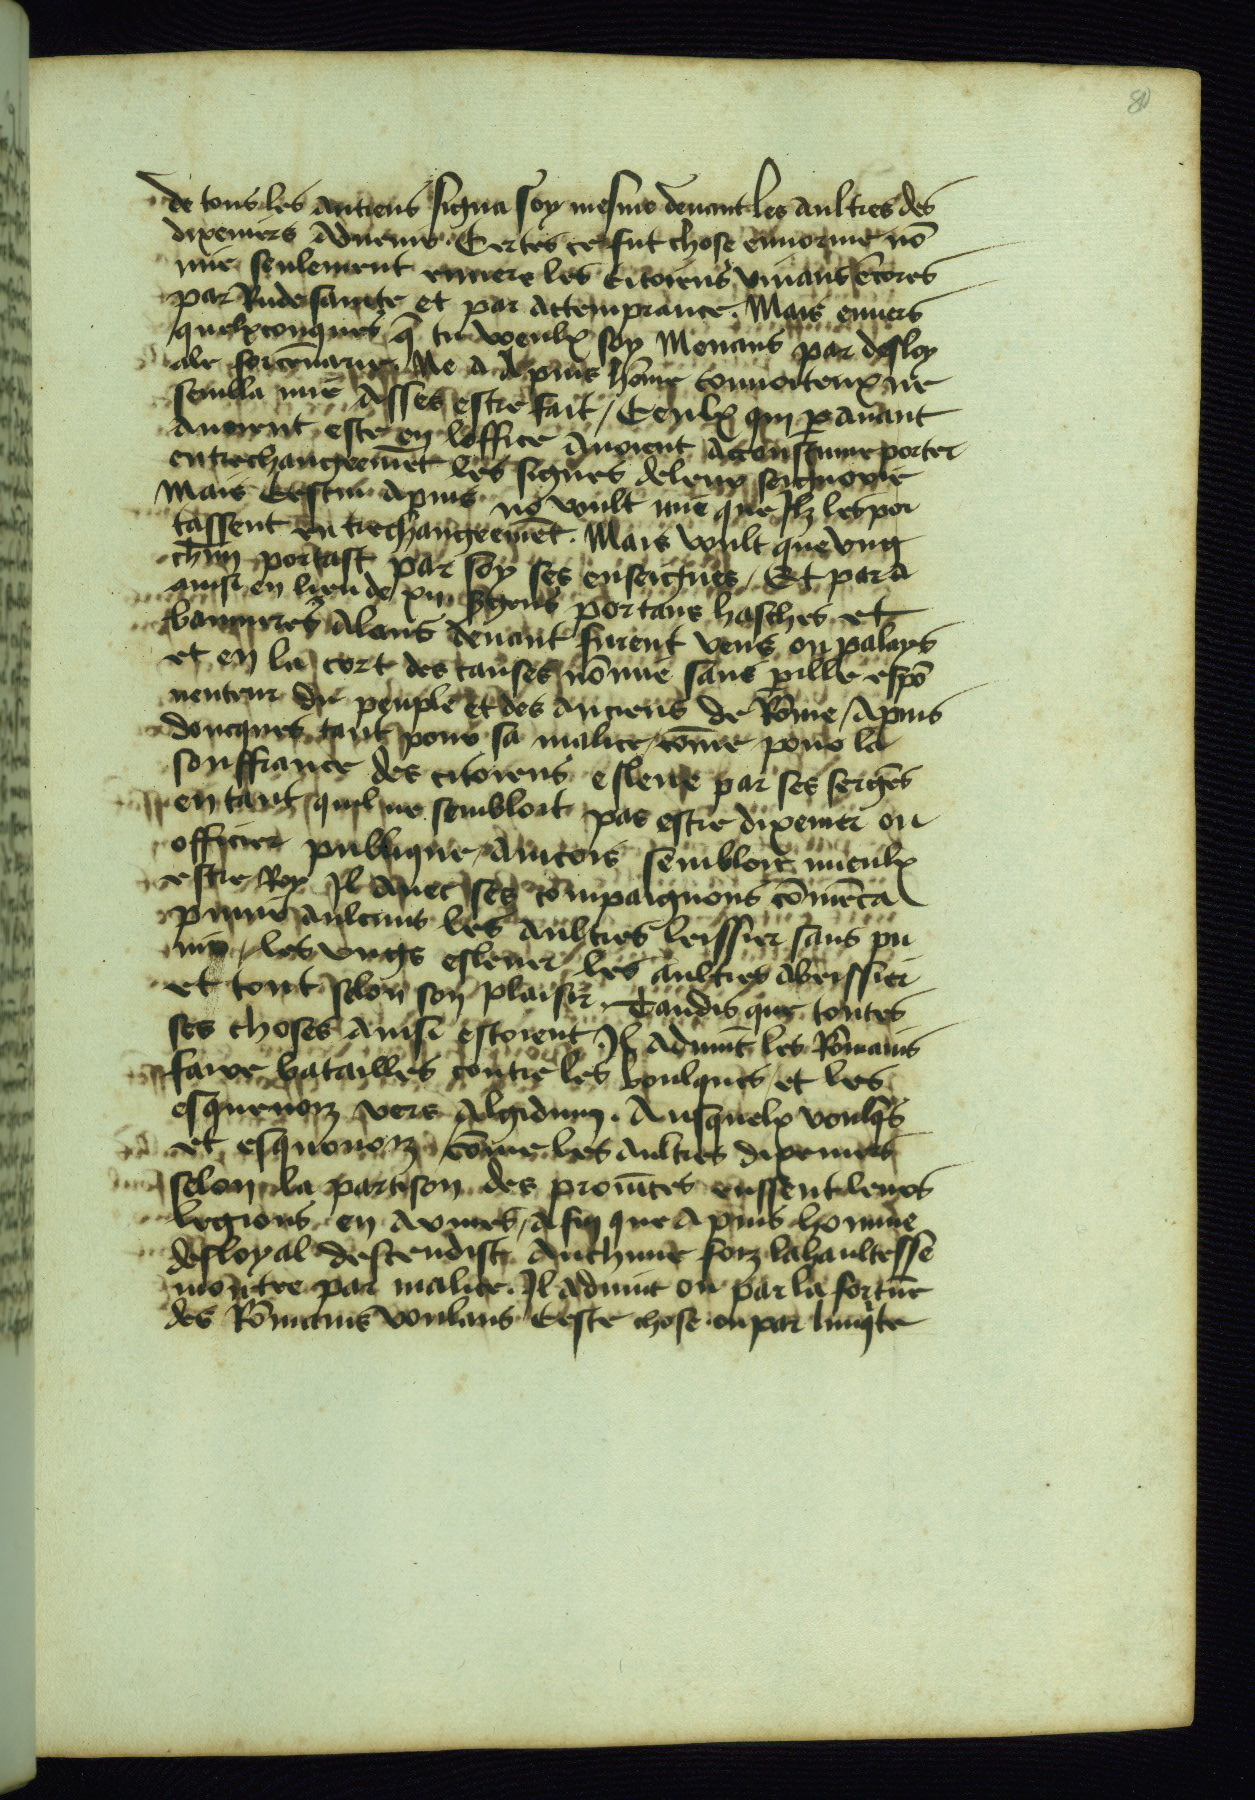 80
de tous les antiens signa soy mesme deuant les aultres des
dixeniers aduenir. Certes ce fut chose ennorme nō
mie seulement enuers les citoiens viuans ēcores
par Rude saincte et par attemprance. Mais enuers
quelxconques q̄ tu veulx soy Menans par desloy
ale forcenarie. Ne a Apius hōme conuoiteux ne
sembla mie Asses estre fait / Ceulx qui parauant
auoient este en loffice auoient Acoustume porter
entrechangeemēt les signes de leur seignorie
Mais Cestui Apius nō voult mie que Ilz les por
tassent entrechangeemēt. Mais voult que vng
chūn portast par soy ses enseignes / Et par a
ainsi en lieu de xii sergens portans hasches et
bannieres Alans deuant furent veus ou palays
et en la cort des causes nō mie sans pille espō
uenteur du peuple et des anciens de Rōme / Apius
doncques tant pour sa malice / cōme pour la
souffrance des citoiens esleue par ses sergēs
en tant quil ne sembloit pas estre dixenier ou
officier publique / aincois sembloit mieulx
estre Roy Il auec ses compaignons cōmēca
punir aulcuns les aultres leissier sans pu
nir / les vngs esleuer les aultres abeissier
et tout selon son plaisir. Tandis que toutes
ses choses ainsi estoient Il aduint les Rōmains
faire batailles contre les voulques / et les
esquenoiz vers Algidum. Ausquelx voulqs
et esquonoiz / cōme les aultres dixeniers
selon la partison des prouīces eussent leurs
legions en armes / afin que Apius homme
desloyal descendist Aulchune foiz la haultesse
montee par malice. Il aduint ou par la fortūe
des Rōmains voulans Ceste chose ou par liniq̄te